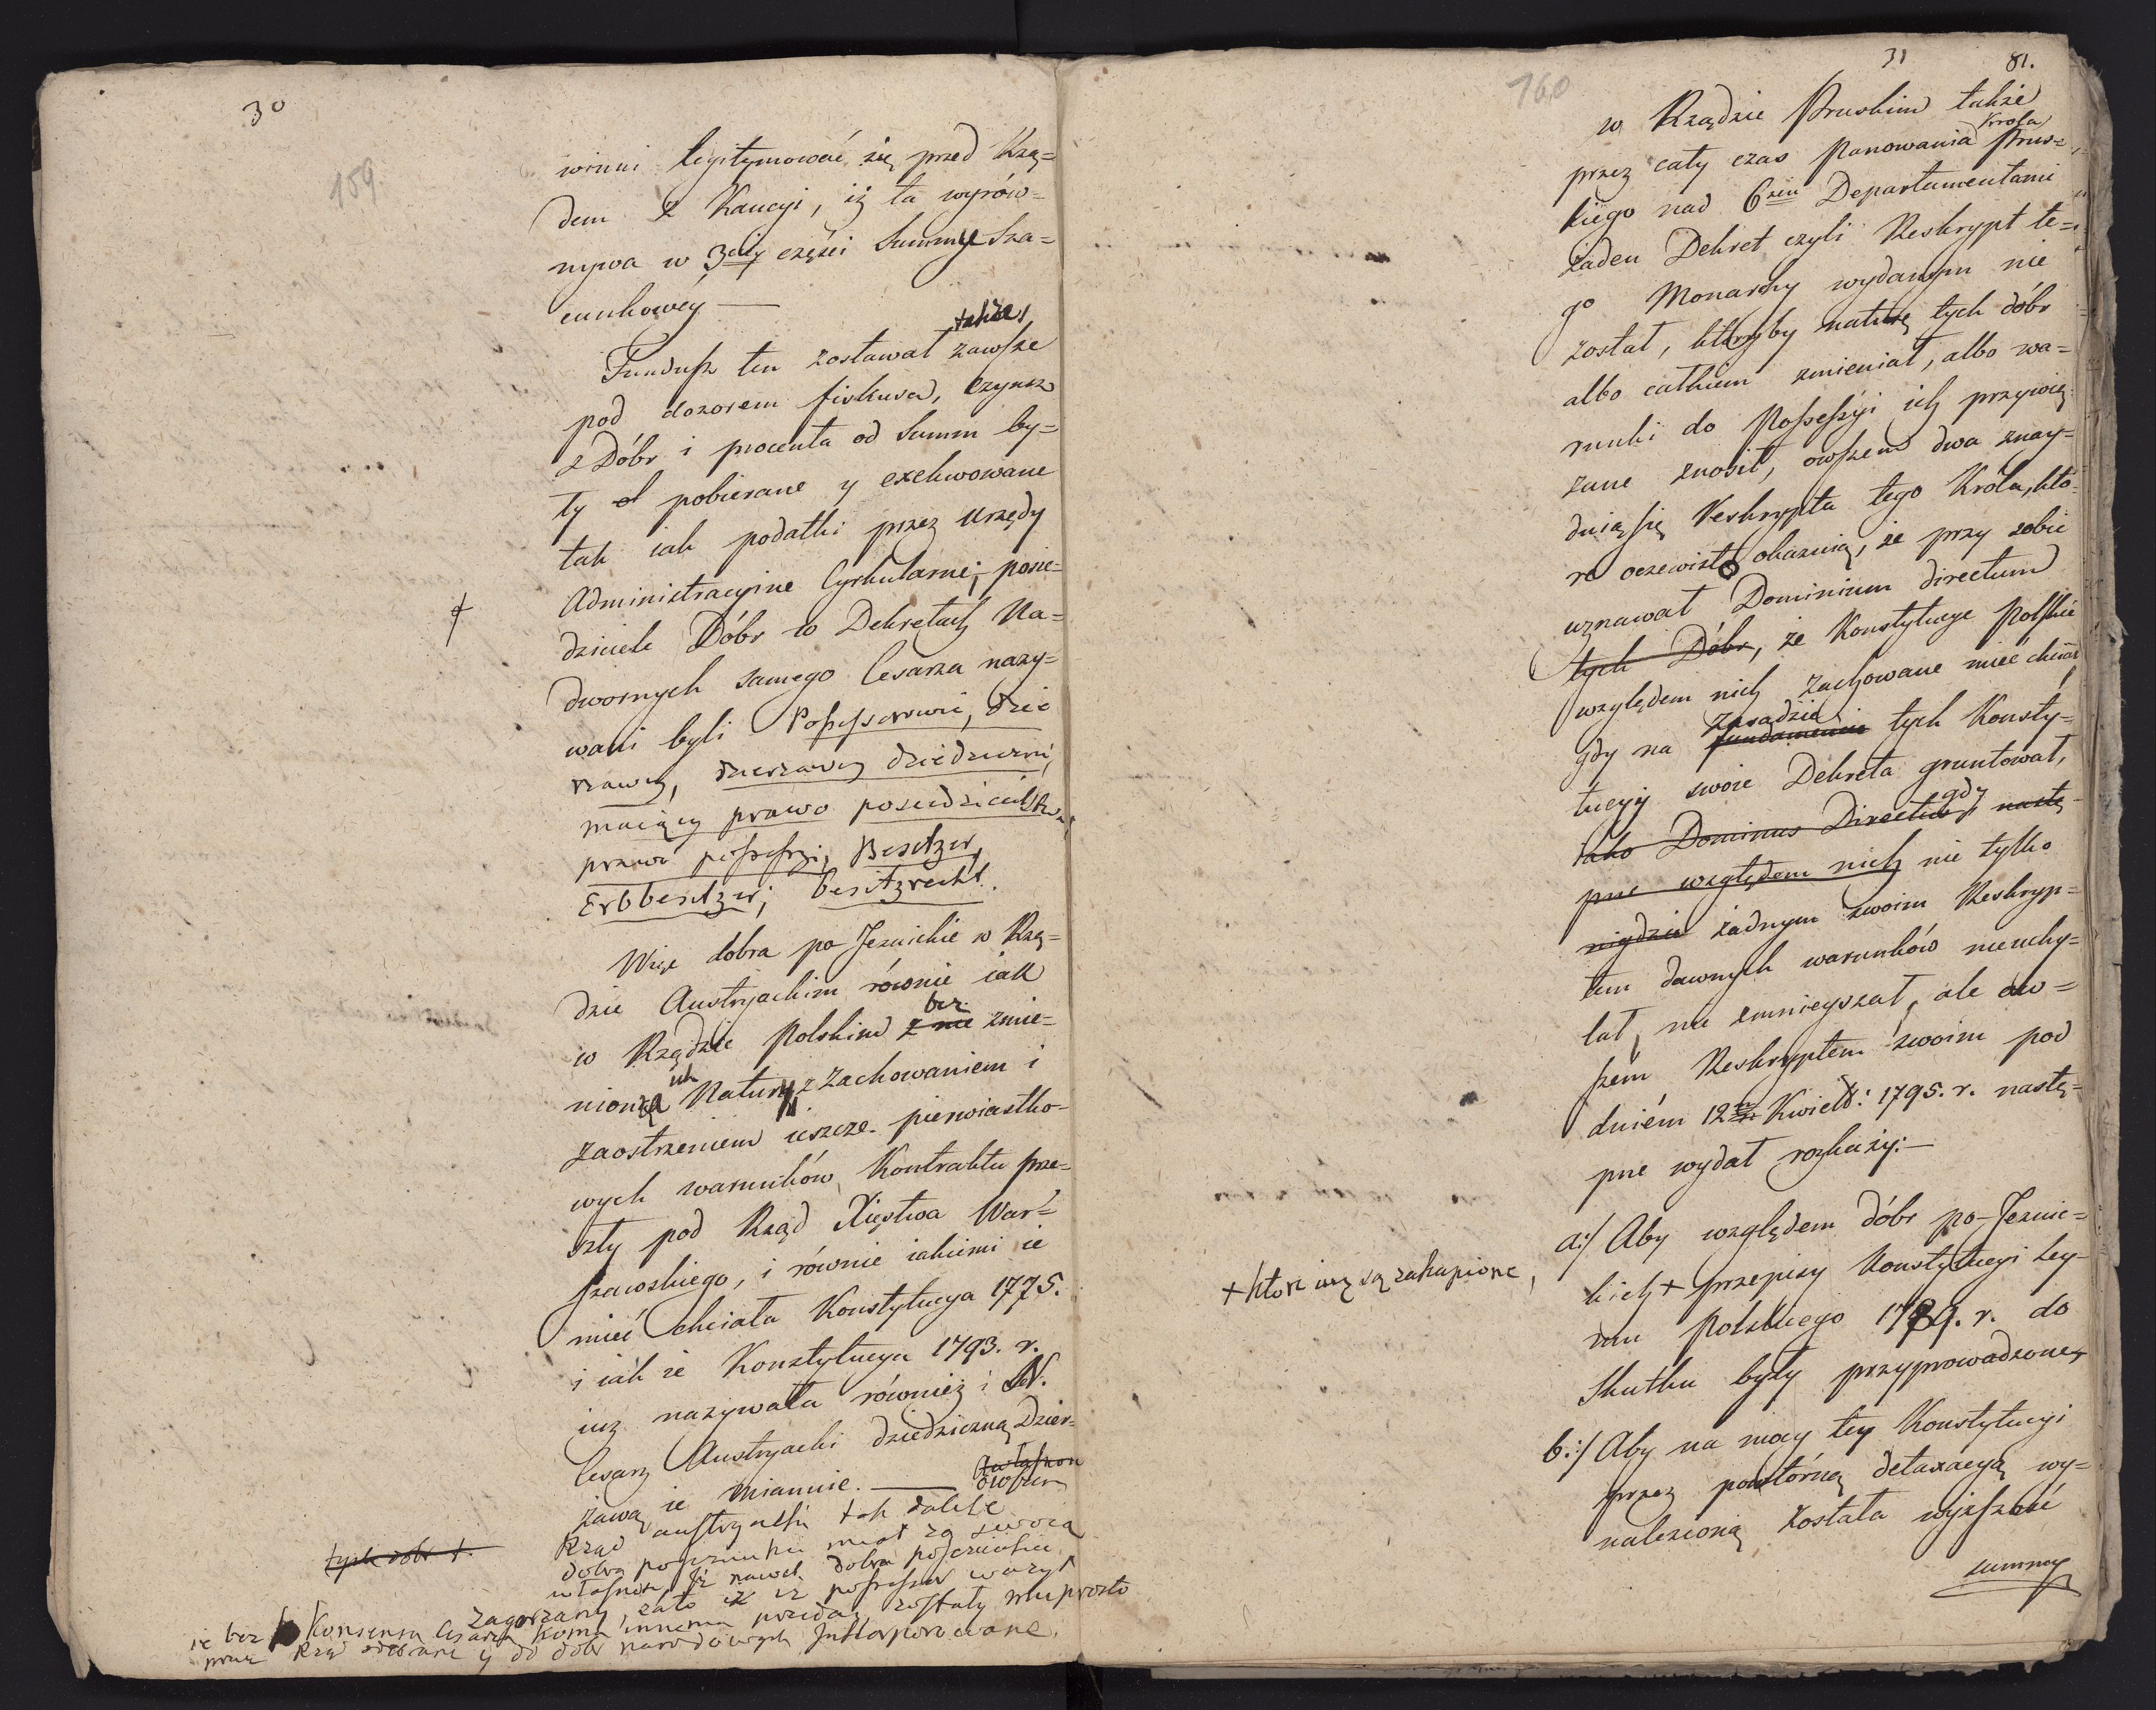 30
159
winni legitymować się przed Rzą=
dem z Kaucyi, iż ta wyrów=
nywa w 3ciéy części Summy Sza=
cunkowéy —
także
Fundusz ten zostawał zawsze
pod dozorem fiskusa, czynsz
z Dóbr i procenta od Summ by=
ły pobierane y exekwowane
tak iak podatki przez Urzędy
Administracyine Cyrkularne; posie=
dziciele Dóbr w Dekretach Na=
dwornych samego Cesarza nazy=
wani byli Possessorowie, dzie
rzawcy, dzierzawcy dziedziczni,
maiący prawo posiedzicielstwa
prawo possessyi, Besitzer,
Erbbesitzer; besitzrecht.
Więc dobra po Jezuickie w Rzą=
dzie Austryackim równie iak
bez
w Rządzie Polskim z nie zmie=
ich
nioną Natury z zachowaniem i
zaostrzeniem ieszcze pierwiastko=
wych warunków Kontraktu prze=
szły pod Rząd Xięstwa War=
szawskiego, i równie iakiemi ie
mieć chciała Konstytucya 1775.
i iak ie Konstytucya 1793. r.
iuż nazywała również i N.
Cesarz Austryacki dziedziczną Dzier=
żawą ie mianuie. —
owszem
Rząd austryacki tak dalece
tych dobr +.
dobra pojezuickie miał za swoią
własność, iż nawet dobra pojezuickie
Zagorzany, zato iż ie possessor ważył
ie bez Konsensu Cesarza komu innemu przedać, zostały wprost
przez Rząd odebrane y do dobr narodowych Inkorporowane.
160
31
81.
w Rządzie Pruskim także
Króla
przez cały czas Panowania Prus=
kiego nad 6ciu Departamentami
żaden Dekret czyli Reskrypt te=
go Monarchy wydanym nie
został, któryby naturę tych dóbr
albo całkiem zmieniał, albo wa=
runki do Possessyi ich przywią=
zane znosił, owszem dwa znay=
duią się Reskrypta tego Króla, któ=
re oczewisto okazuią, że przy sobie
uznawał Dominium directum
tych Dóbr, że Konstytucye Polskie
względem nich zachowane mieć chciał,
zasadzie
gdy na fundamencie tych Konsty=
tucyy swoie Dekreta gruntował,
gdy
iako Dominus Directus, nastę=
pne względem nich nie tylko
nigdzie żadnym swoim Reskryp=
tem dawnych warunków nieuchy=
lał, nie zmnieyszał, ale ow=
szém Reskryptem swoim pod
dniém 12m Kwiet: 1795. r. nastę=
pne wydał rozkazy: —
a:/ Aby względem dóbr po-Jezuic=
kich + przepisy Konstytucyi Sey=
+ które iuż są zakupione,
mu Polskiego 1789. r. do
Skutku były przyprowadzone,
b:/ Aby na mocy tey Konstytucyi
przez powtórną detaxacyą wy=
nalezioną została wyższość
summy